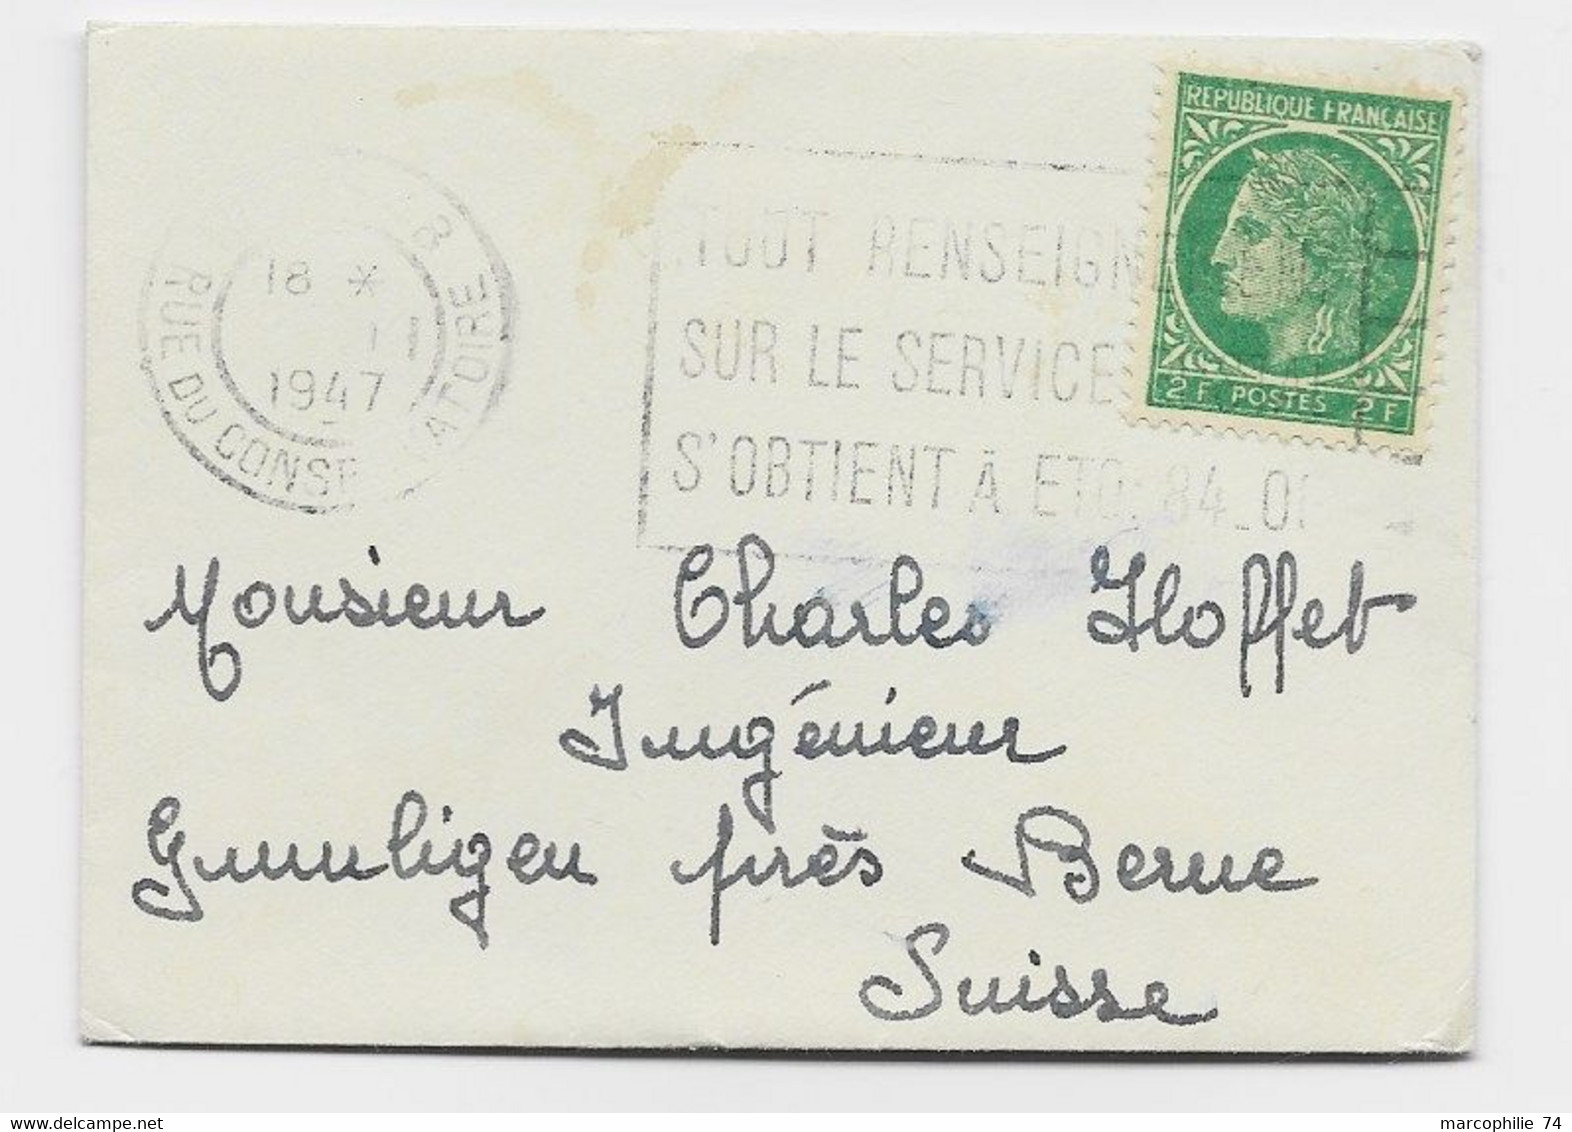 REPUBLIQUE FRANÇAISE
2F POSTES 2F
18 *
II
1947
RUE DU CONSERVATOIRE
TOUT
SUR LE SERVICE
S'OBTIENT À ETO: 84_0
Monsieur Charles Hoffet
Ingénieur
Gumligen près Berne
Suisse
marcophilie 74